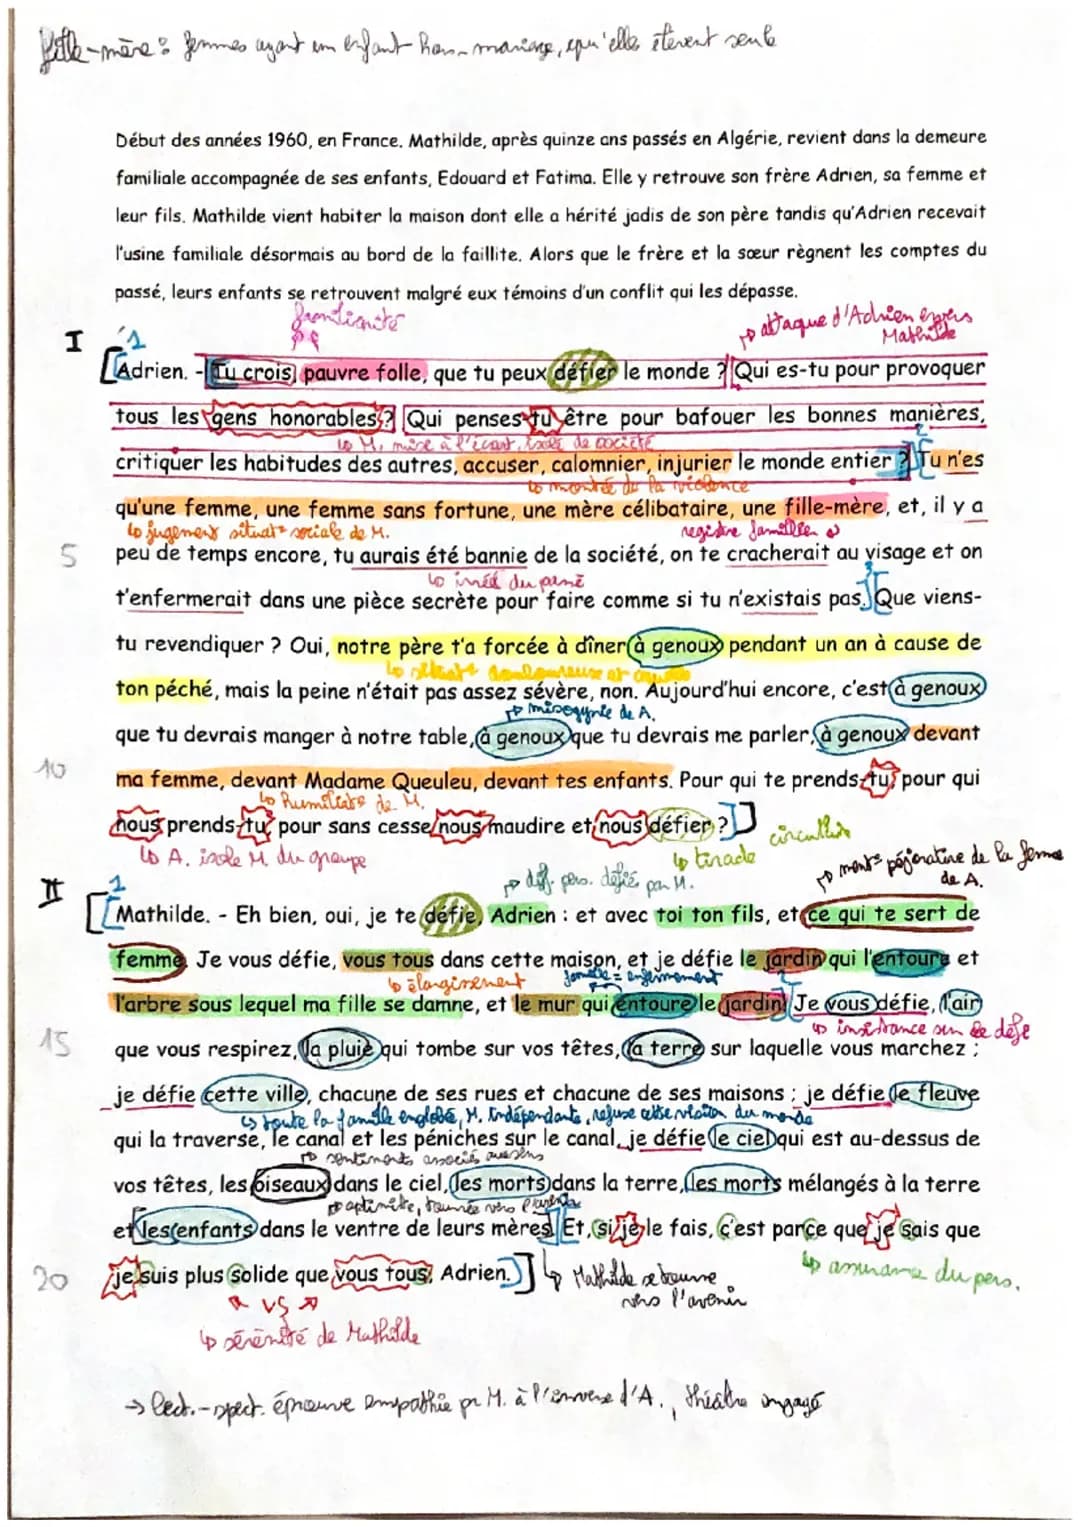 fille-mère : femmes ayant un enfant hors-mariage, qu'elles élèvent seule
Début des années 1960, en France. Mathilde, après quinze ans passés en Algérie, revient dans la demeure
familiale accompagnée de ses enfants, Edouard et Fatima. Elle y retrouve son frère Adrien, sa femme et
leur fils. Mathilde vient habiter la maison dont elle a hérité jadis de son père tandis qu'Adrien recevait
l'usine familiale désormais au bord de la faillite. Alors que le frère et la sœur règnent les comptes du
passé, leurs enfants se retrouvent malgré eux témoins d'un conflit qui les dépasse.
familiarité
attaque d'Adrien envers
Mathilde
I 1
[Adrien. - Tu crois, pauvre folle, que tu peux défier le monde ? Qui es-tu pour provoquer
tous les gens honorables ? Qui penses-tu être pour bafouer les bonnes manières,
↳ M. mise à l'écart, isolé de société
2
critiquer les habitudes des autres, accuser, calomnier, injurier le monde entier ? Tu n'es
↳ montée de la violence
qu'une femme, une femme sans fortune, une mère célibataire, une fille-mère, et, il y a
↳ jugement situat° sociale de M.
registre familier
5 peu de temps encore, tu aurais été bannie de la société, on te cracherait au visage et on
↳ irréel du passé
3
t'enfermerait dans une pièce secrète pour faire comme si tu n'existais pas.] [Que viens-
tu revendiquer ? Oui, notre père t'a forcée à dîner à genoux pendant un an à cause de
↳ douloureuse et
ton péché, mais la peine n'était pas assez sévère, non. Aujourd'hui encore, c'est à genoux
misogynie de A.
que tu devrais manger à notre table, à genoux que tu devrais me parler, à genoux devant
10 ma femme, devant Madame Queuleu, devant tes enfants. Pour qui te prends-tu, pour qui
↳ Humiliat° de M.
nous prends-tu, pour sans cesse nous maudire et nous défier ?]]
↳ A. isole M. du groupe
circulaire
↳ tirade
diff. pers. défié par M.
ment° péjorative de la femme
de A.
II 1
[[Mathilde. - Eh bien, oui, je te défie, Adrien : et avec toi ton fils, et ce qui te sert de
femme. Je vous défie, vous tous dans cette maison, et je défie le jardin qui l'entoure et
↳ élargissement
famille = enfermement
2
l'arbre sous lequel ma fille se damne, et le mur qui entoure le jardin.] [Je vous défie, l'air
↳ insistance sur le défi
15 que vous respirez, la pluie qui tombe sur vos têtes, la terre sur laquelle vous marchez ;
je défie cette ville, chacune de ses rues et chacune de ses maisons ; je défie le fleuve
↳ toute la famille englobé, M. indépendante, refuse cette vision du monde
qui la traverse, le canal et les péniches sur le canal, je défie le ciel qui est au-dessus de
sentiments associés
vos têtes, les oiseaux dans le ciel, les morts dans la terre, les morts mélangés à la terre
et les enfants dans le ventre de leurs mères.] [Et, si je le fais, c'est parce que je sais que
20 je suis plus solide que vous tous, Adrien.]]
↳ Mathilde se tourne
vers l'avenir
↳ assurance du pers.
VS
↳ sérénité de Mathilde
→ lect.-spect. éprouve empathie pr M. à l'inverse d'A., théâtre engagé